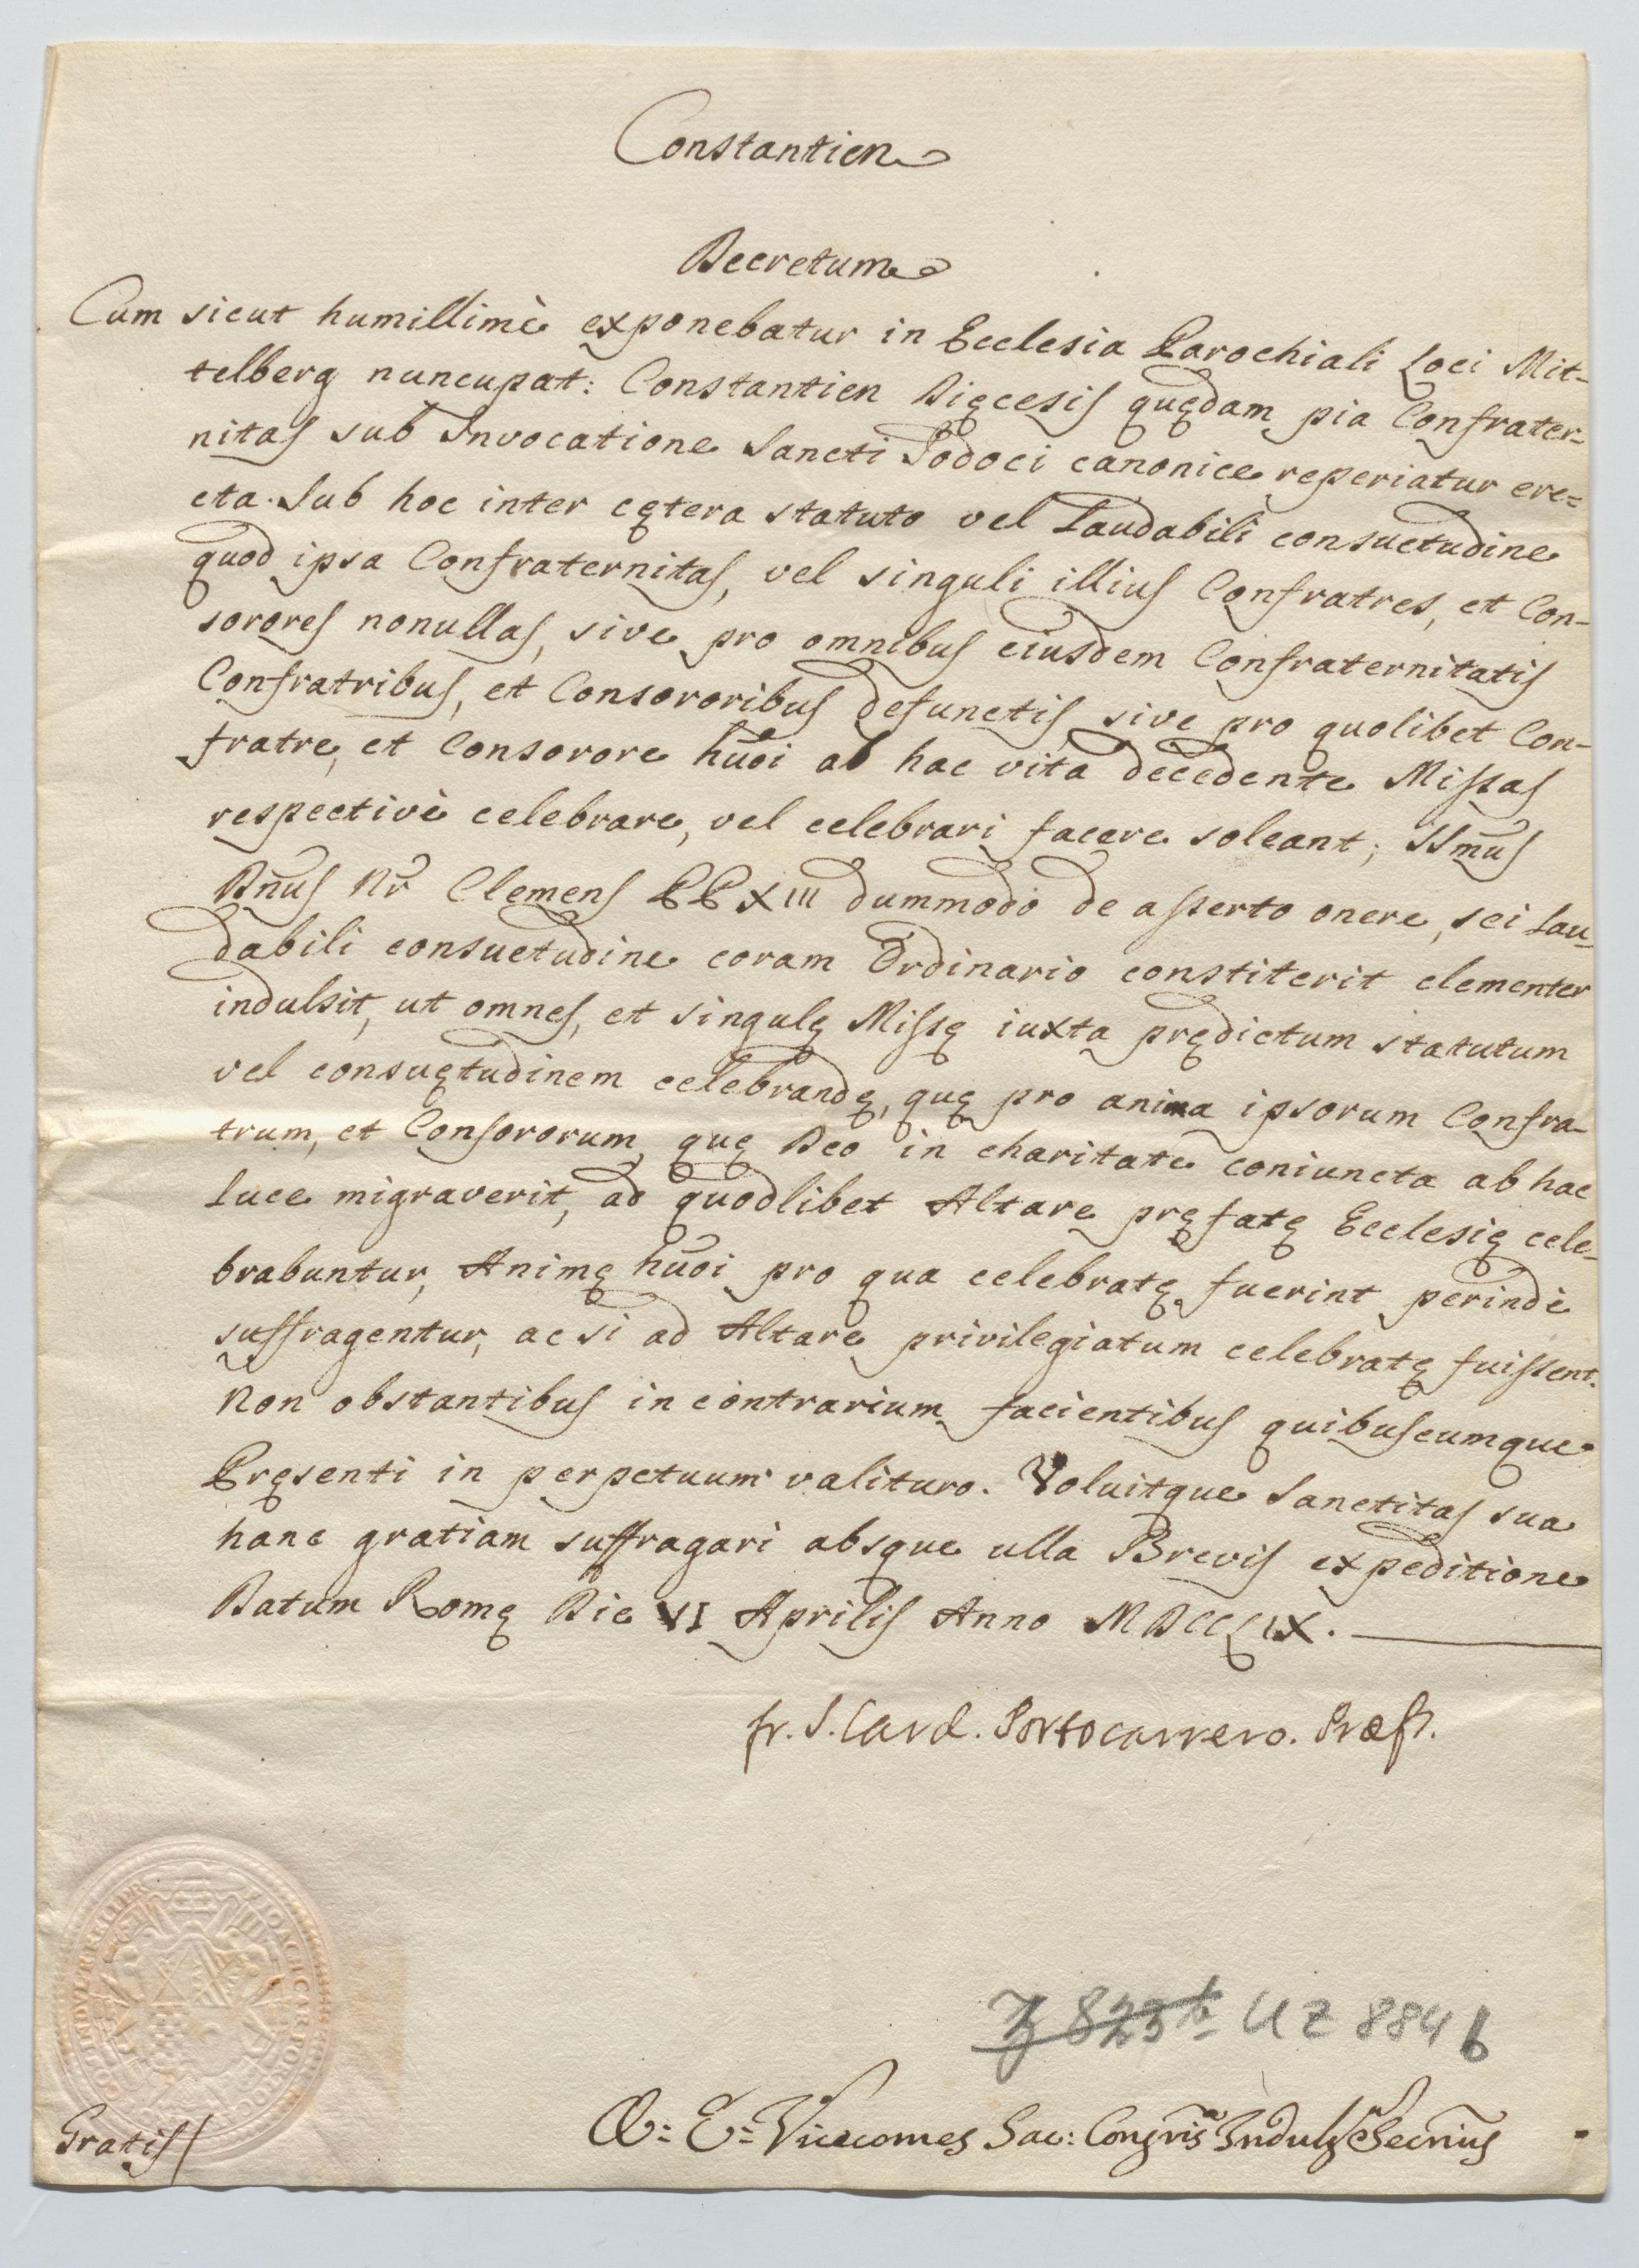 Constantien
Decretum
Cum sicut humillimè exponebatur in Ecclesia Parochiali Loci Mit-
telberg nuncupat: Constantien Dięcesis quędam pia Confrater=
nitas sub Invocatione Sancti Jodoci canonice reperiatur ere=
cta. Sub hoc inter cętera statuto vel Laudabili consuetudine
quod ipsa Confraternitas, vel singuli illius Confratres, et Con-
sorores nonullas, sive pro omnibus eiusdem Confraternitatis
Confratribus, et Consororibus defunctis, sive pro quolibet Con-
fratre, et Consorore hũoi ab hac vita decedente Missas
respectivè celebrare, vel celebrari facere soleant; SSm̃us
Dñus Nr̃ Clemens PP XIII dummodo de asserto onere, sei Lau-
dabili consuetudine coram Ordinario constiterit clementer
indulsit, ut omnes, et singulę Missę iuxta prędictum statutum
vel consuętudinem celebrandę, quę pro anima ipsorum Confra-
trum, et Consororum, quę Deo in charitate coniuncta ab hac
luce migraverit, ad quodlibet Altare pręfatę Ecclesię cele-
brabuntur, Animę hũoi pro qua celebratę fuerint perindè
suffragentur, ac si ad Altare privilegiatum celebratę fuissent.
Non obstantibus in contrarium facientibus quibuscumque
Pręsenti in perpetuum valituro. Voluitque Sanctitas sua
hanc gratiam suffragari absque ulla Brevis expeditione
Datum Romę Die VI Aprilis Anno MDCCLIX.
fr. J. Card. Portocarrero. Præf.
Z 823 b UZ 884 b
Gratis
A: E: Vicecomes Sac: Congñis Indulg Secrius